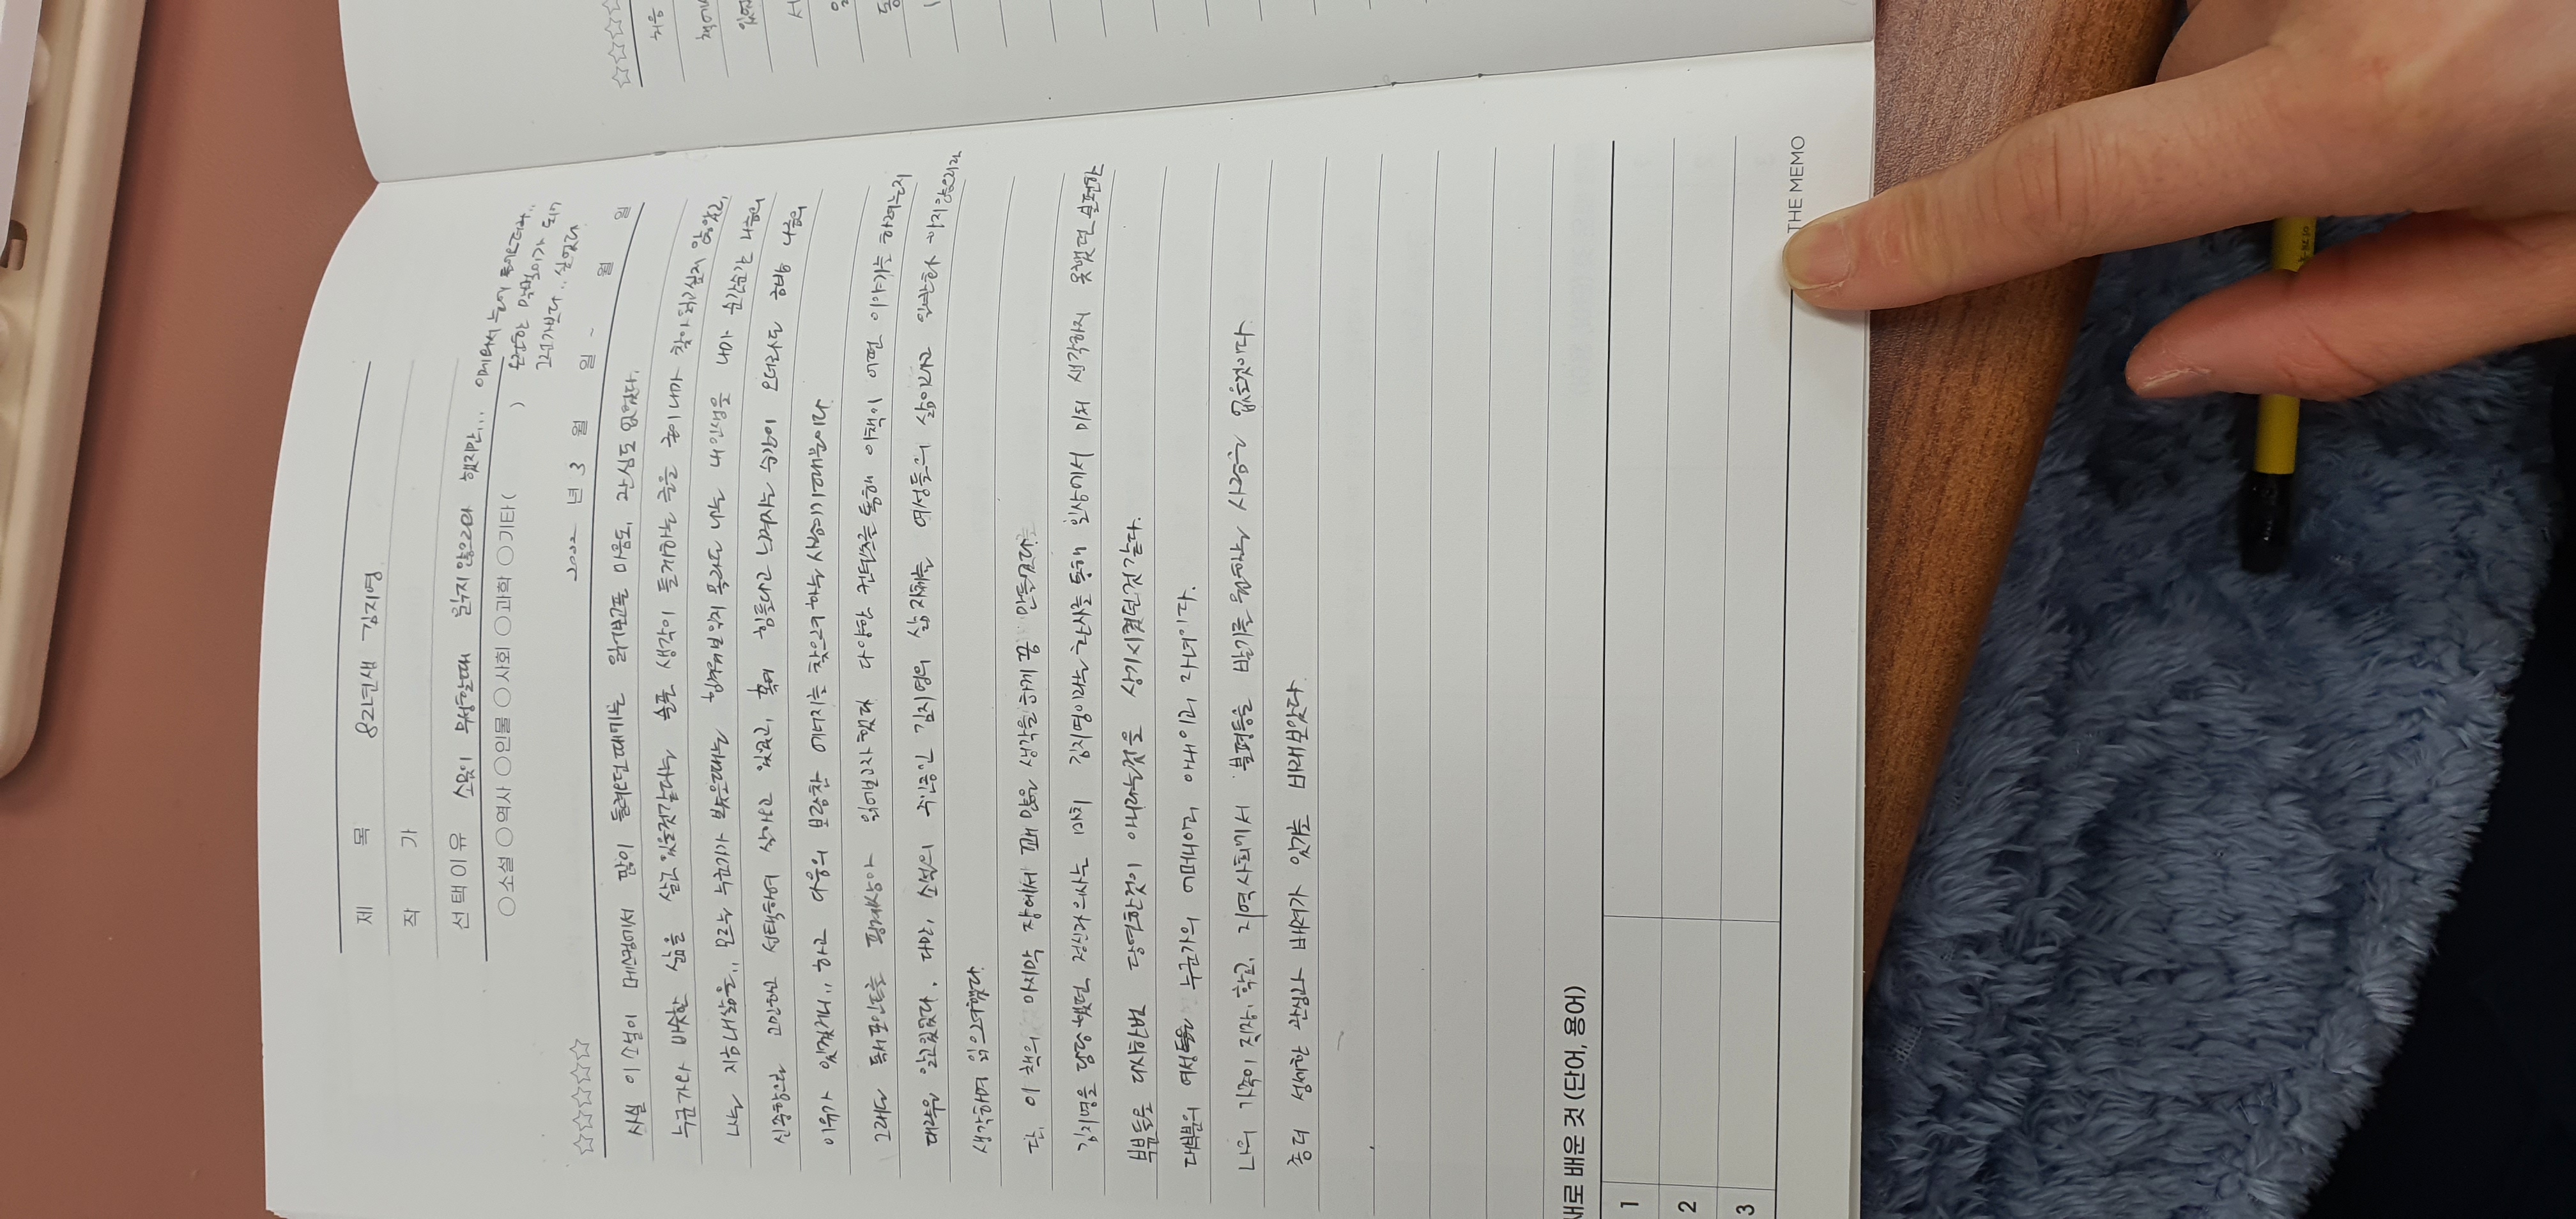 제 목 82년생 김지영
작 가
선택이유 소문이 무성할때 읽지 않으리라 했지만... 이제와서 눈에 들어오더라..
온전한 맞벌이가 되어
그런가보다.. 싶었다.
○소설 ○역사 ○인물 ○사회 ○과학 ○기타 ( )
☆☆☆☆☆ 2022 년 3 월 일 ~ 월 일
사실 이 소설이 매스컴에서 많이 들려오던 때에는 읽어보고픈 마음도, 관심도 없었다.
누군가와 비슷한 삶을 살고 있을것같다는 슬픈 생각이 들게하는 글을 굳이 내가 찾아 읽고싶지 않았고,
나는 지금 내삶을.. 모르는 누군가가 봤을때는 힘겨워보일지 몰라도 나는 내 인생을 내가 순간순간 나름의
신중함으로 고민하고 선택하여 살아오고 있었고, 혹여 힘들다고 느껴지는 순간이 오더라도 금방 나름의
이유가 있겠거니.. 하고 다음의 보람찬 에너지를 찾으려 하는 사람이기 때문이다.
그래도 독서포인트를 핑계삼아 읽어보고자 했다. 다양한 컨텐츠를 통해 이책이 어떤 이야기를 하려는지
대략은 알고있었다. 다만, 소설의 주인공인 김지영의 삶 자체를 여성들의 삶이라고 일반화 하지않으리라
생각하며 읽으려했다.
단, 이 책의 마지막 장에서 꽤 많은 생각을 하게끔 만들었다.
김지영을 담당했던 정신과의사는 마치 김지영이라는 환자를 통해 일상에서 미처 생각하지 못했던 불편한
부분들을 다시한번 당연한것이 아니라는것을 상기시켰던것 같다.
대부분의 여성들은 누군가의 어머니이고, 아내이고, 자녀이다.
나의 가족이 직장, 학교, 지역사회에서 불평등을 받기를 원하는 사람은 없을것이다.
좀 더 섬세한 관심과 배려가 있기를 바래보았다.
새로 배운 것 (단어, 용어)
1
2
3
THE MEMO
☆☆☆☆
처음
책에